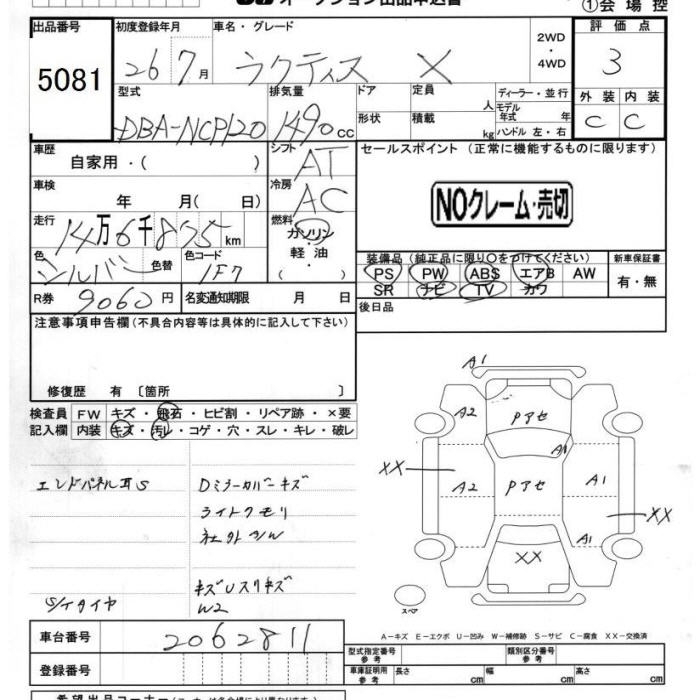 ①会場控
出品番号 初度登録年月 車名・グレード 2WD・4WD 評価点
5081 26年7月 ラクティス X 3
型式 排気量 ドア 定員 人 ディーラー・並行 外装 内装
モデル年式 年
DBA-NCP120 1490cc 形状 積載 kg ハンドル 左・右 C C
車歴 自家用・( ) シフト AT セールスポイント(正常に機能するものに限ります)
車検 年 月(日) 冷房 AC
NOクレーム・売切
走行 14万6千875km 燃料 ガソリン・軽油・
色 シルバー 色替 色コード 1F7
装備品(純正品に限り○をつけてください) 新車保証書
PS PW ABS エアB AW 有・無
SR ナビ TV カワ
R券 9060円 名変通知期限 月 日
後日品
注意事項申告欄(不具合内容等は具体的に記入して下さい)
修復歴 有 〔箇所 〕
検査員記入欄 FW キズ・飛石・ヒビ割・リペア跡・×要
内装 キズ・汚レ・コゲ・穴・スレ・キレ・破レ
Dミラーカバーキズ
ライトクモリ
社外
S/タイヤ
W2
A1
A2 Pアセ
A1
XX A2 Pアセ A1 XX
A1
XX
スペア
A-キズ E-エクボ U-凹み W-補修跡 S-サビ C-腐食 XX-交換済
車台番号 2062811
型式指定番号 参考 類別区分番号 参考
登録番号
車庫証明用 参考 長さ cm 幅 cm 高さ cm